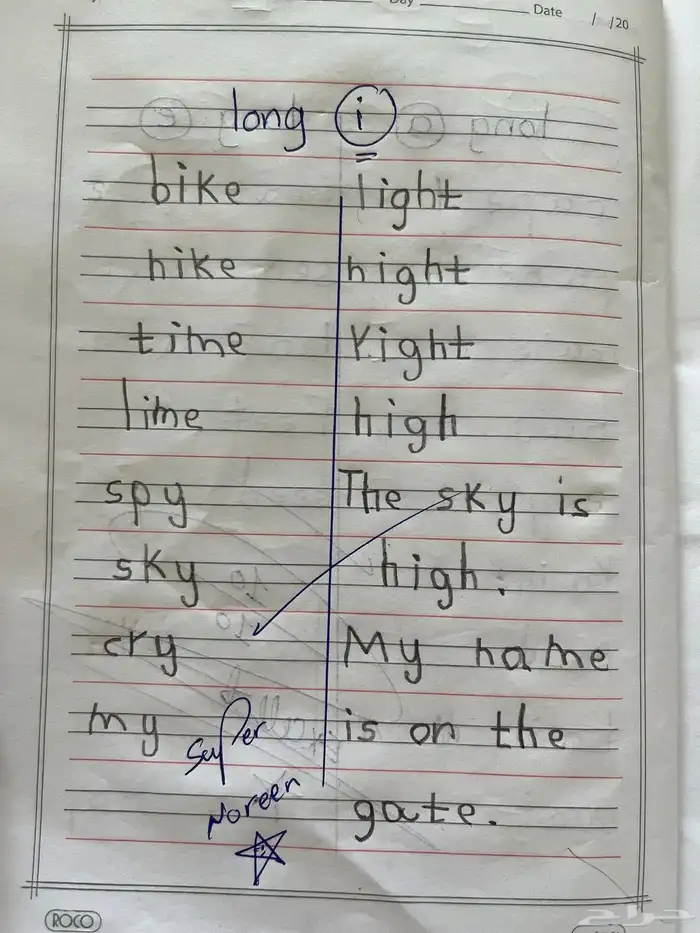 Day Date / /20
long i
bike
hike
time
lime
spy
sky
cry
my
super
Noreen
light
night
right
high
The sky is
high.
My name
is on the
gate.
ROCO
حراج